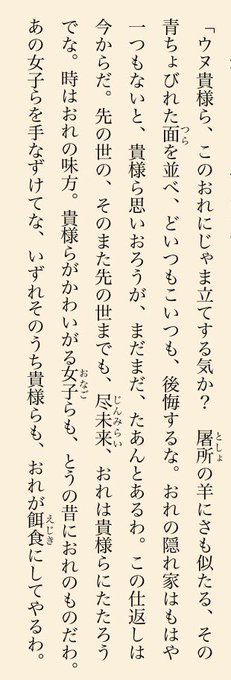 「ウヌ貴様ら、このおれにじゃま立てする気か？　屠所の羊にさも似たる、その
青ちょびれた面を並べ、どいつもこいつも、後悔するな。おれの隠れ家はもはや
一つもないと、貴様ら思いおろうが、まだまだ、たあんとあるわ。この仕返しは
今からだ。先の世の、そのまた先の世までも、尽未来、おれは貴様らにたたろう
でな。時はおれの味方。貴様らがかわいがる女子らも、とうの昔におれのものだわ。
あの女子らを手なずけてな、いずれそのうち貴様らも、おれが餌食にしてやるわ。